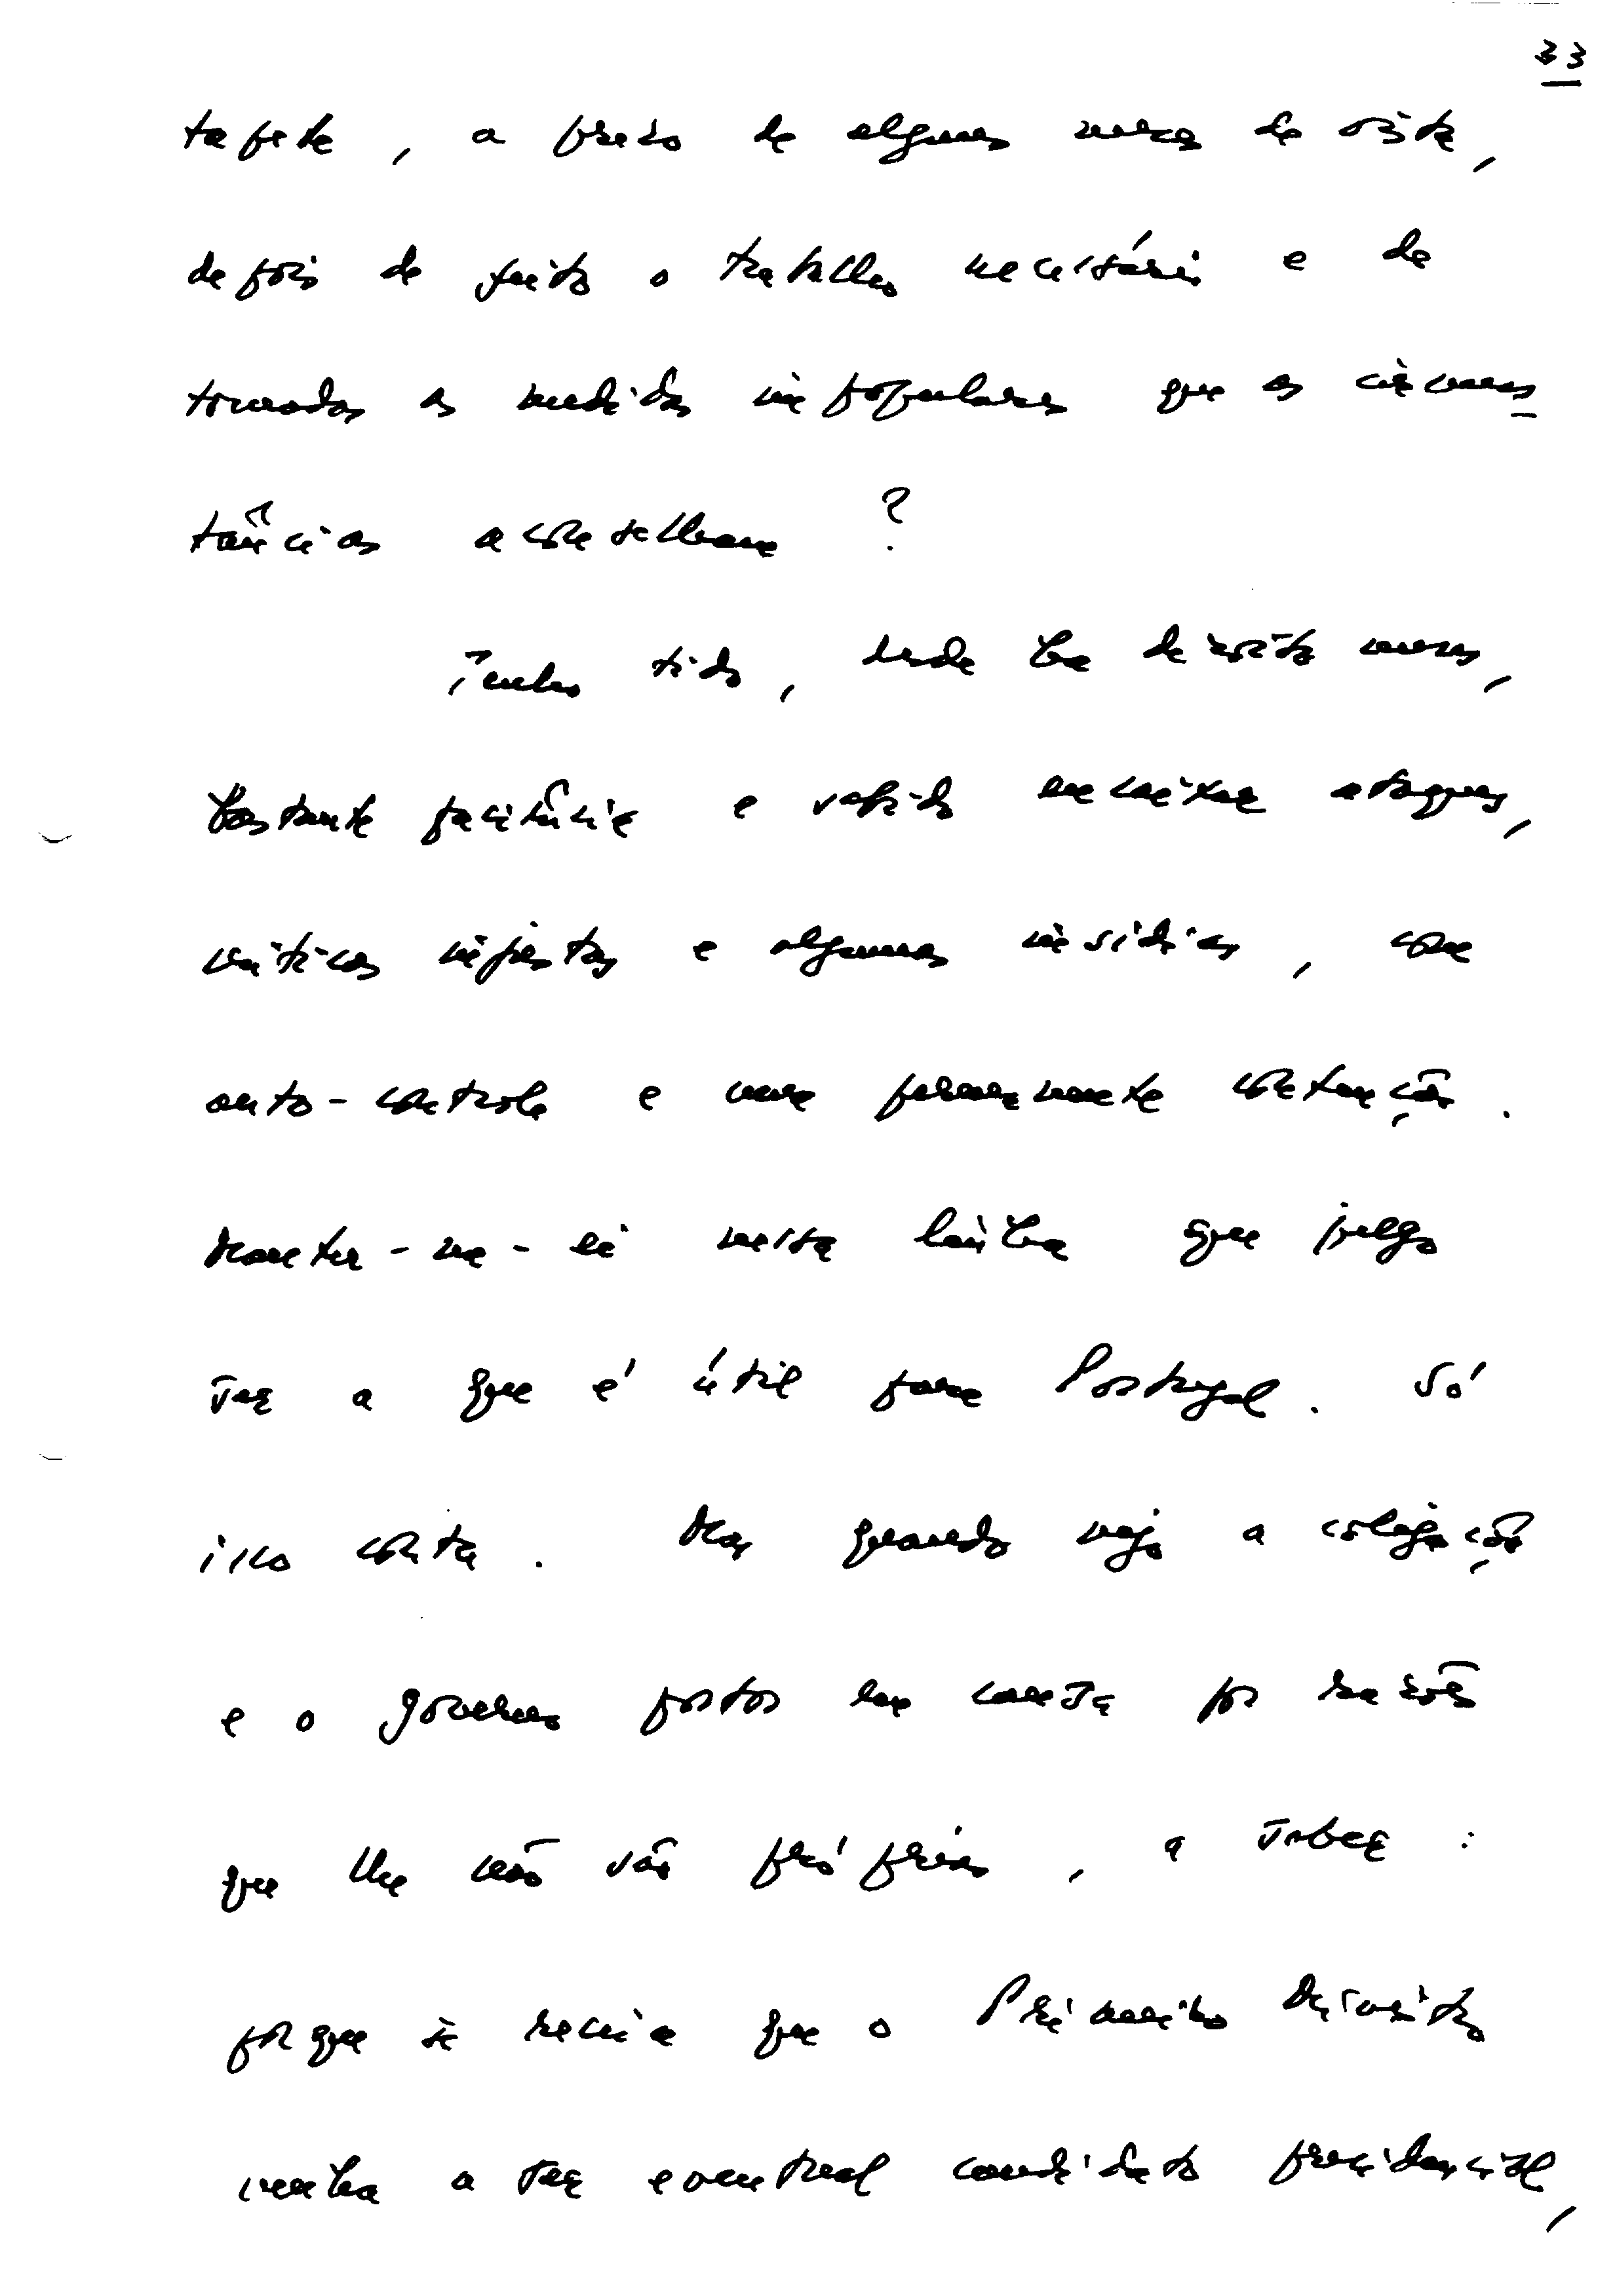 33
tapete, a preço de alguns meses de vista,
depois de feito o trabalho necessário e de
tomadas as medidas impopulares que as circuns
tâncias aconselham ?
Tenho tido, desde há dezoito meses,
bastante paciência e sabido encaixar ataques,
críticas injustas e algumas insídias, com
auto-controle e uma permanente contenção.
Manter-me-ei nesta linha que julgo
ser a que é útil para Portugal. Só
isso conta. Mas quando vejo a coligação
e o governo postos em causa por razões
que lhe não são próprias, a saber :
porque se receia que o Primeiro Ministro
venha a ser eventual candidato presidencial,